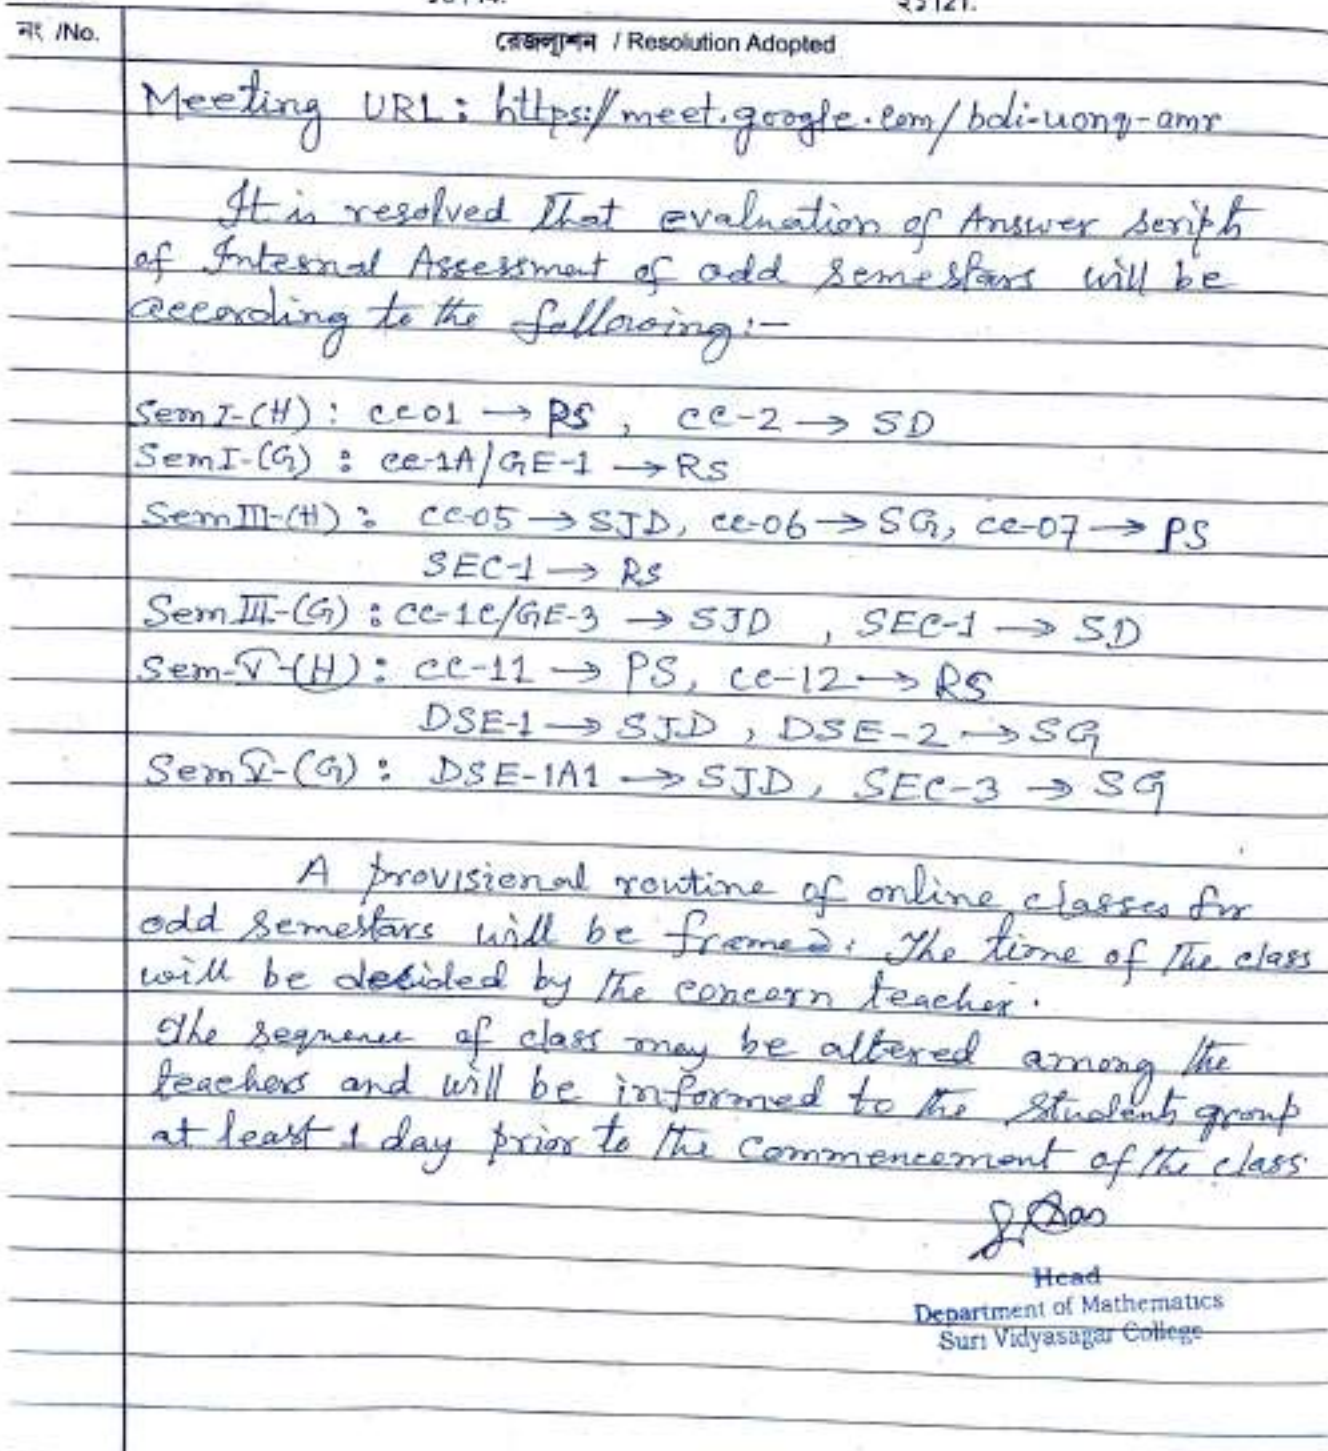 নং /No.
রেজল্যুশন / Resolution Adopted
Meeting URL: https://meet.google.com/bdi-uonq-amr
It is resolved that evaluation of Answer scripts
of Internal Assessment of odd semestars will be
according to the following:-
Sem I-(H) : CC01 → RS , CC-2 → SD
Sem I-(G) : CC-1A/GE-1 → RS
Sem III-(H) : CC-05 → SJD, CC-06 → SG, CC-07 → PS
SEC-1 → RS
Sem III-(G) : CC-1C/GE-3 → SJD , SEC-1 → SD
Sem-V-(H) : CC-11 → PS, CC-12 → RS
DSE-1 → SJD , DSE-2 → SG
Sem V-(G) : DSE-1A1 → SJD, SEC-3 → SG
A provisional routine of online classes for
odd semestars will be framed. The time of the class
will be decided by the concern teacher.
The sequence of class may be altered among the
teachers and will be informed to the students group
at least 1 day prior to the commencement of the class
S. Das
Head
Department of Mathematics
Suri Vidyasagar College